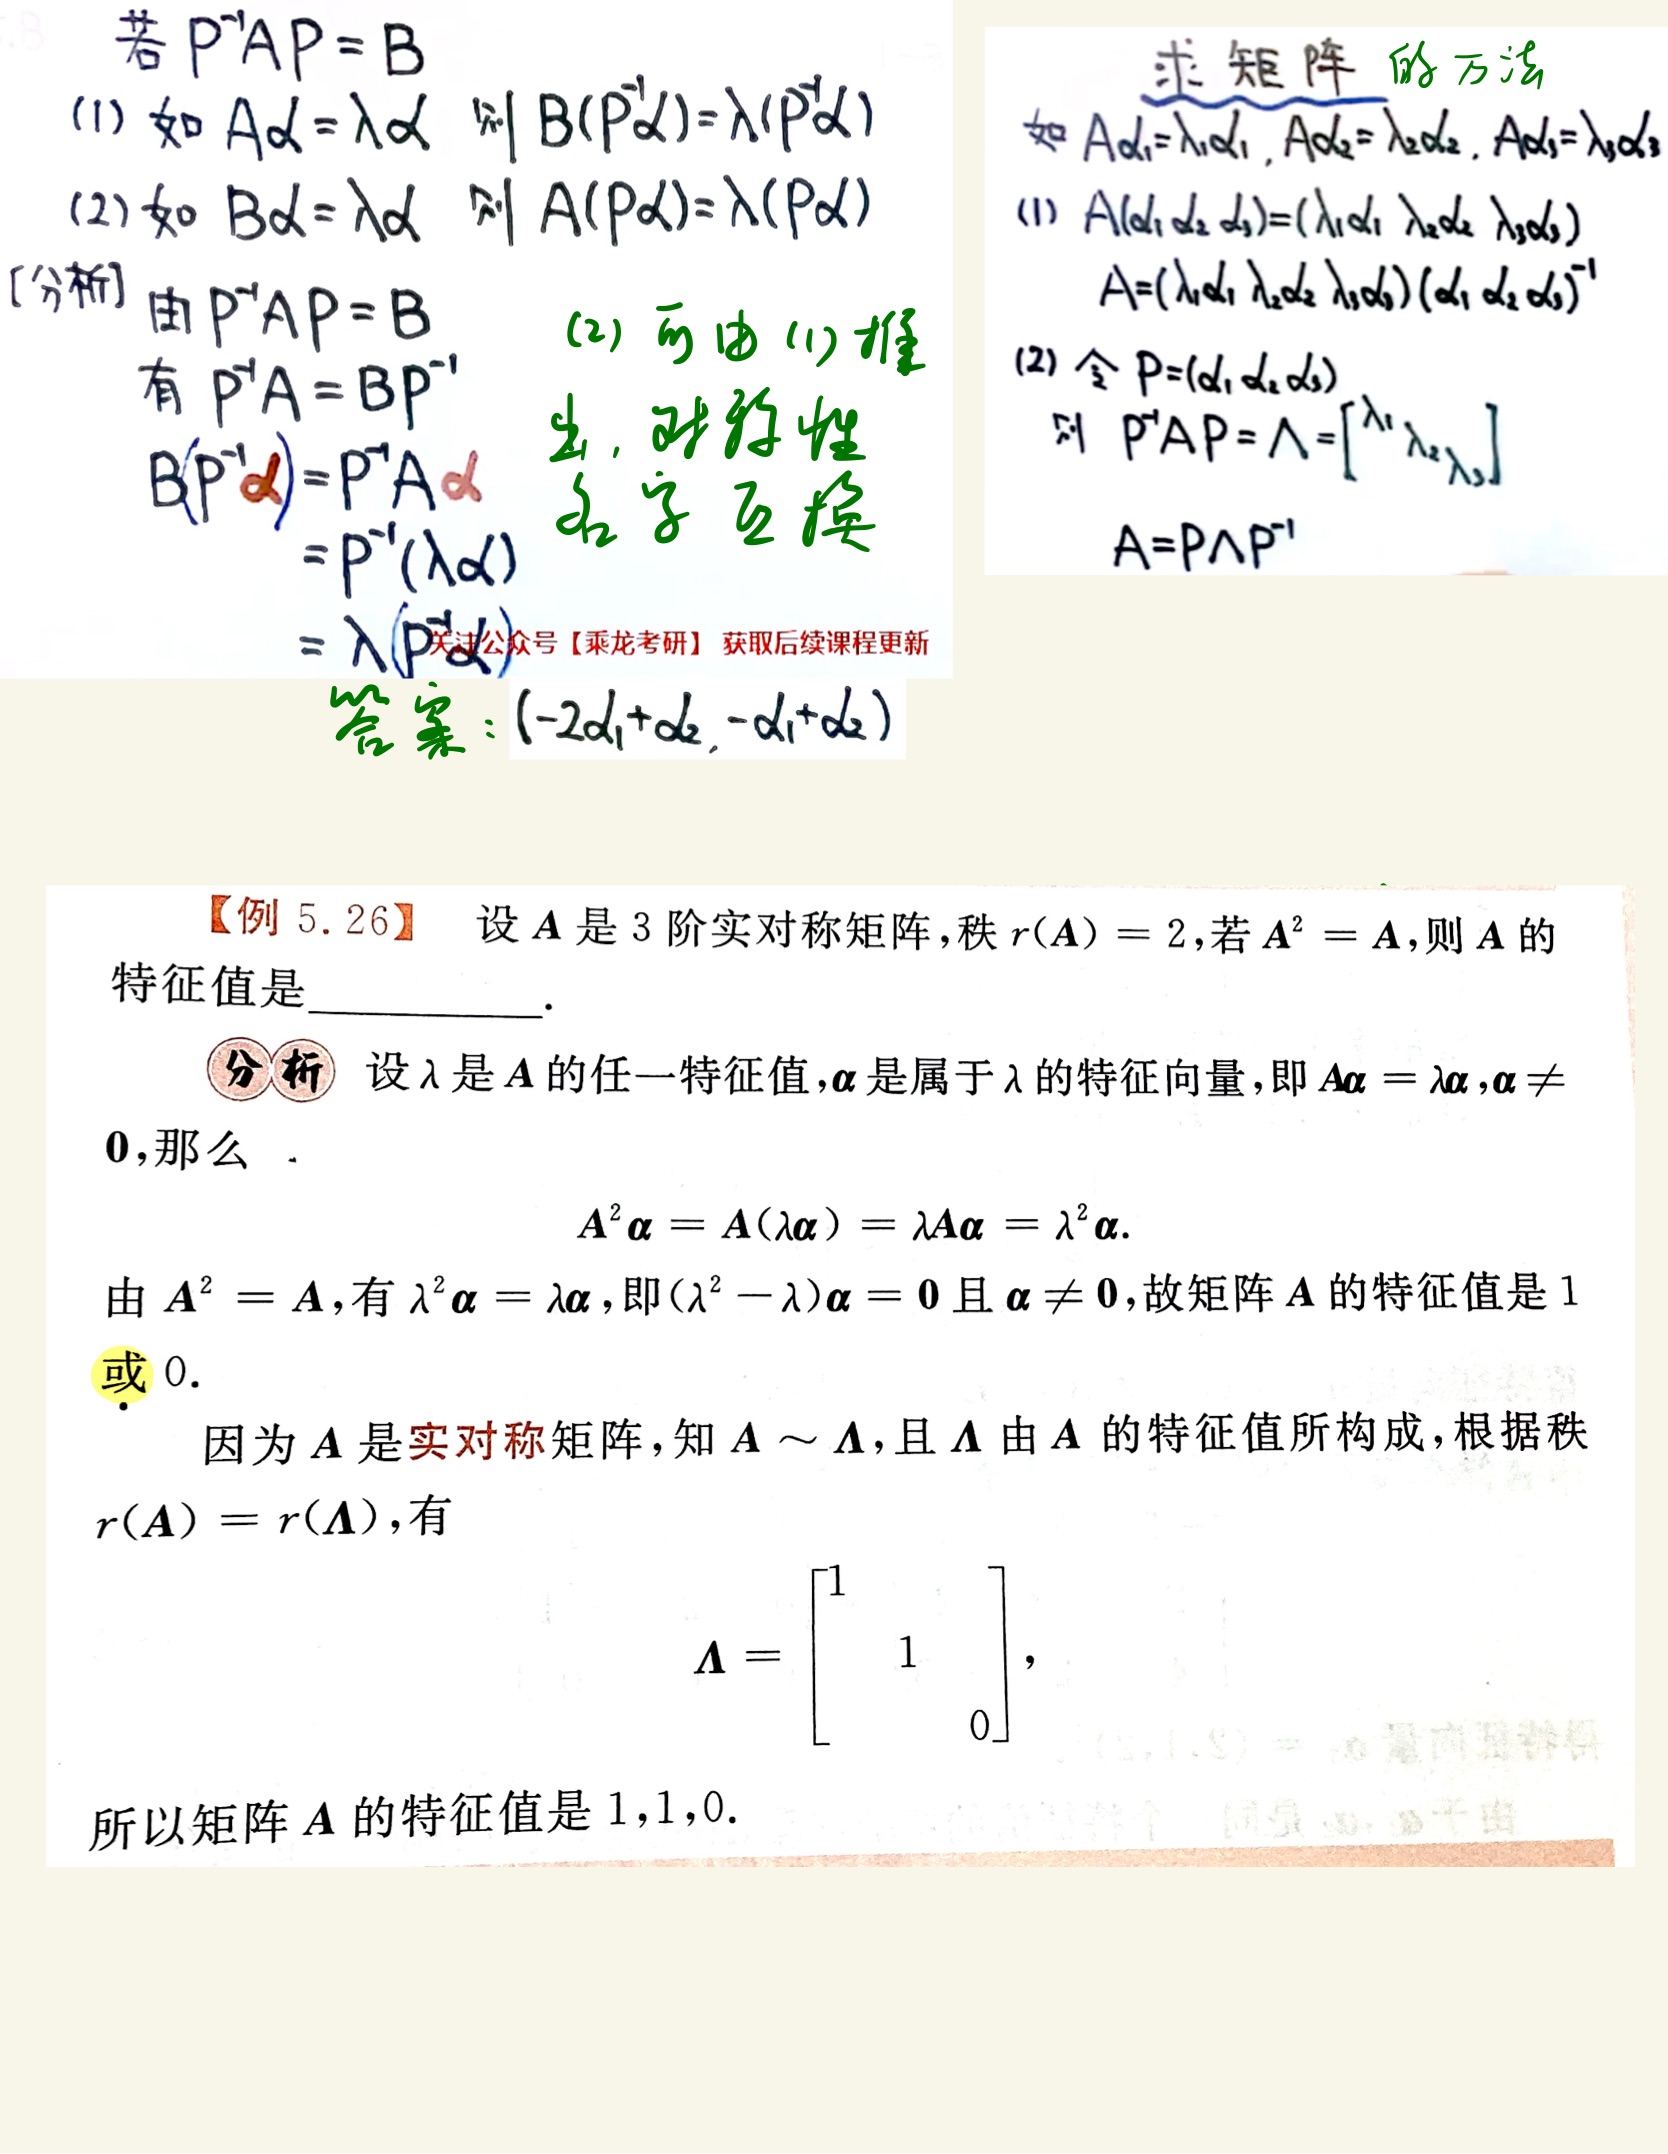 若 P⁻¹AP = B
(1) 如 Aα = λα 则 B(P⁻¹α) = λ(P⁻¹α)
(2) 如 Bα = λα 则 A(Pα) = λ(Pα)
[分析] 由 P⁻¹AP = B
有 P⁻¹A = BP⁻¹
B(P⁻¹α) = P⁻¹Aα
= P⁻¹(λα)
= λ(P⁻¹α)
关注公众号【乘龙考研】 获取后续课程更新
(2) 可由 (1) 推
出, 对称性
名字互换
答案: (-2α₁+α₂, -α₁+α₂)
求矩阵的方法
如 Aα₁=λ₁α₁, Aα₂=λ₂α₂, Aα₃=λ₃α₃
(1) A(α₁ α₂ α₃)=(λ₁α₁ λ₂α₂ λ₃α₃)
A=(λ₁α₁ λ₂α₂ λ₃α₃)(α₁ α₂ α₃)⁻¹
(2) 令 P=(α₁ α₂ α₃)
则 P⁻¹AP = Λ = [λ₁ λ₂ λ₃]
A=PΛP⁻¹
【例 5.26】 设 A 是 3 阶实对称矩阵,秩 r(A) = 2,若 A² = A,则 A 的
特征值是__________.
分析 设 λ 是 A 的任一特征值,α 是属于 λ 的特征向量,即 Aα = λα,α ≠
0,那么
A²α = A(λα) = λAα = λ²α.
由 A² = A,有 λ²α = λα,即(λ² − λ)α = 0 且 α ≠ 0,故矩阵 A 的特征值是 1
或 0.
因为 A 是实对称矩阵,知 A ~ Λ,且 Λ 由 A 的特征值所构成,根据秩
r(A) = r(Λ),有
Λ = [1 1 0],
所以矩阵 A 的特征值是 1,1,0.